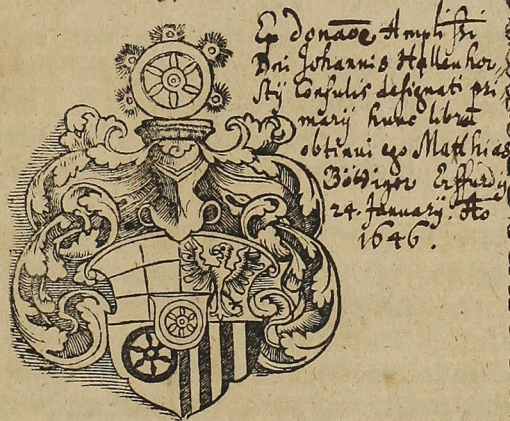 Ex donaōe Amplissi
Dni Johannis Hallenhor,
stÿ Consulis designati pri,
marÿ hunc librū
obtinui ego Matthias
Böttiger Erffurdÿ
24. Januarÿ. Aō
1646.